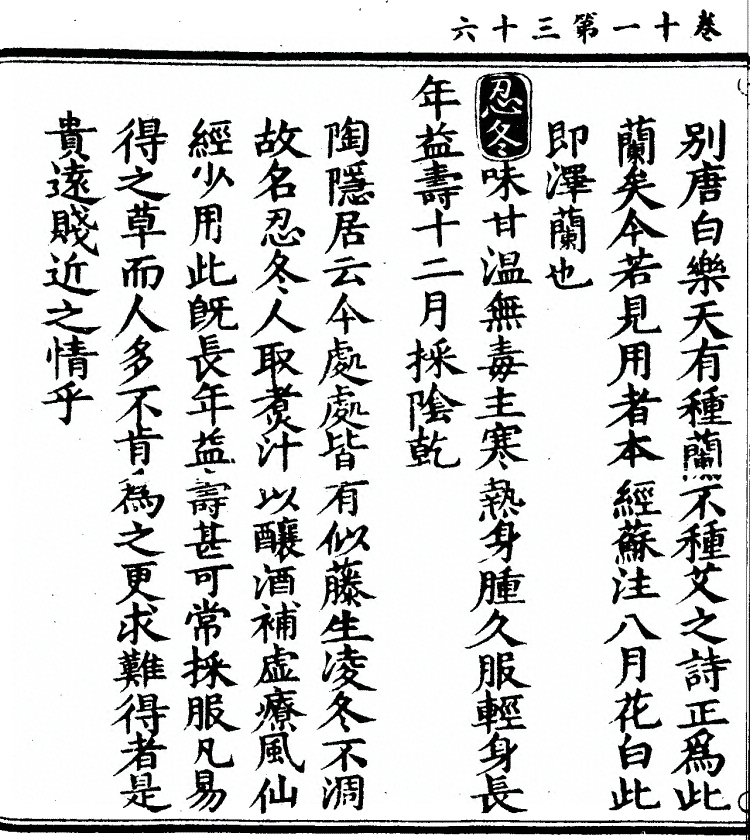 卷十一第三十六
別唐白樂天有種蘭不種艾之詩正爲此
蘭矣今若見用者本經蘇注八月花白此
即澤蘭也
忍冬味甘温無毒主寒熱身腫久服輕身長
年益壽十二月採陰乾
陶隱居云今處處皆有似藤生凌冬不凋
故名忍冬人取煑汁以釀酒補虚療風仙
經少用此旣長年益壽甚可常採服凡易
得之草而人多不肯爲之更求難得者是
貴遠賤近之情乎